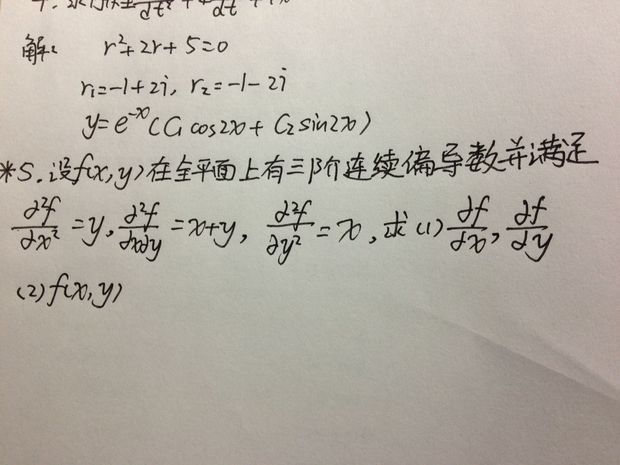 解: r²+2r+5=0
r₁=-1+2i, r₂=-1-2i
y=e⁻ˣ(C₁cos2x+C₂sin2x)
*5.设f(x,y)在全平面上有三阶连续偏导数并满足
∂²f/∂x²=y, ∂²f/∂x∂y=x+y, ∂²f/∂y²=x,求(1)∂f/∂x, ∂f/∂y
(2)f(x,y)